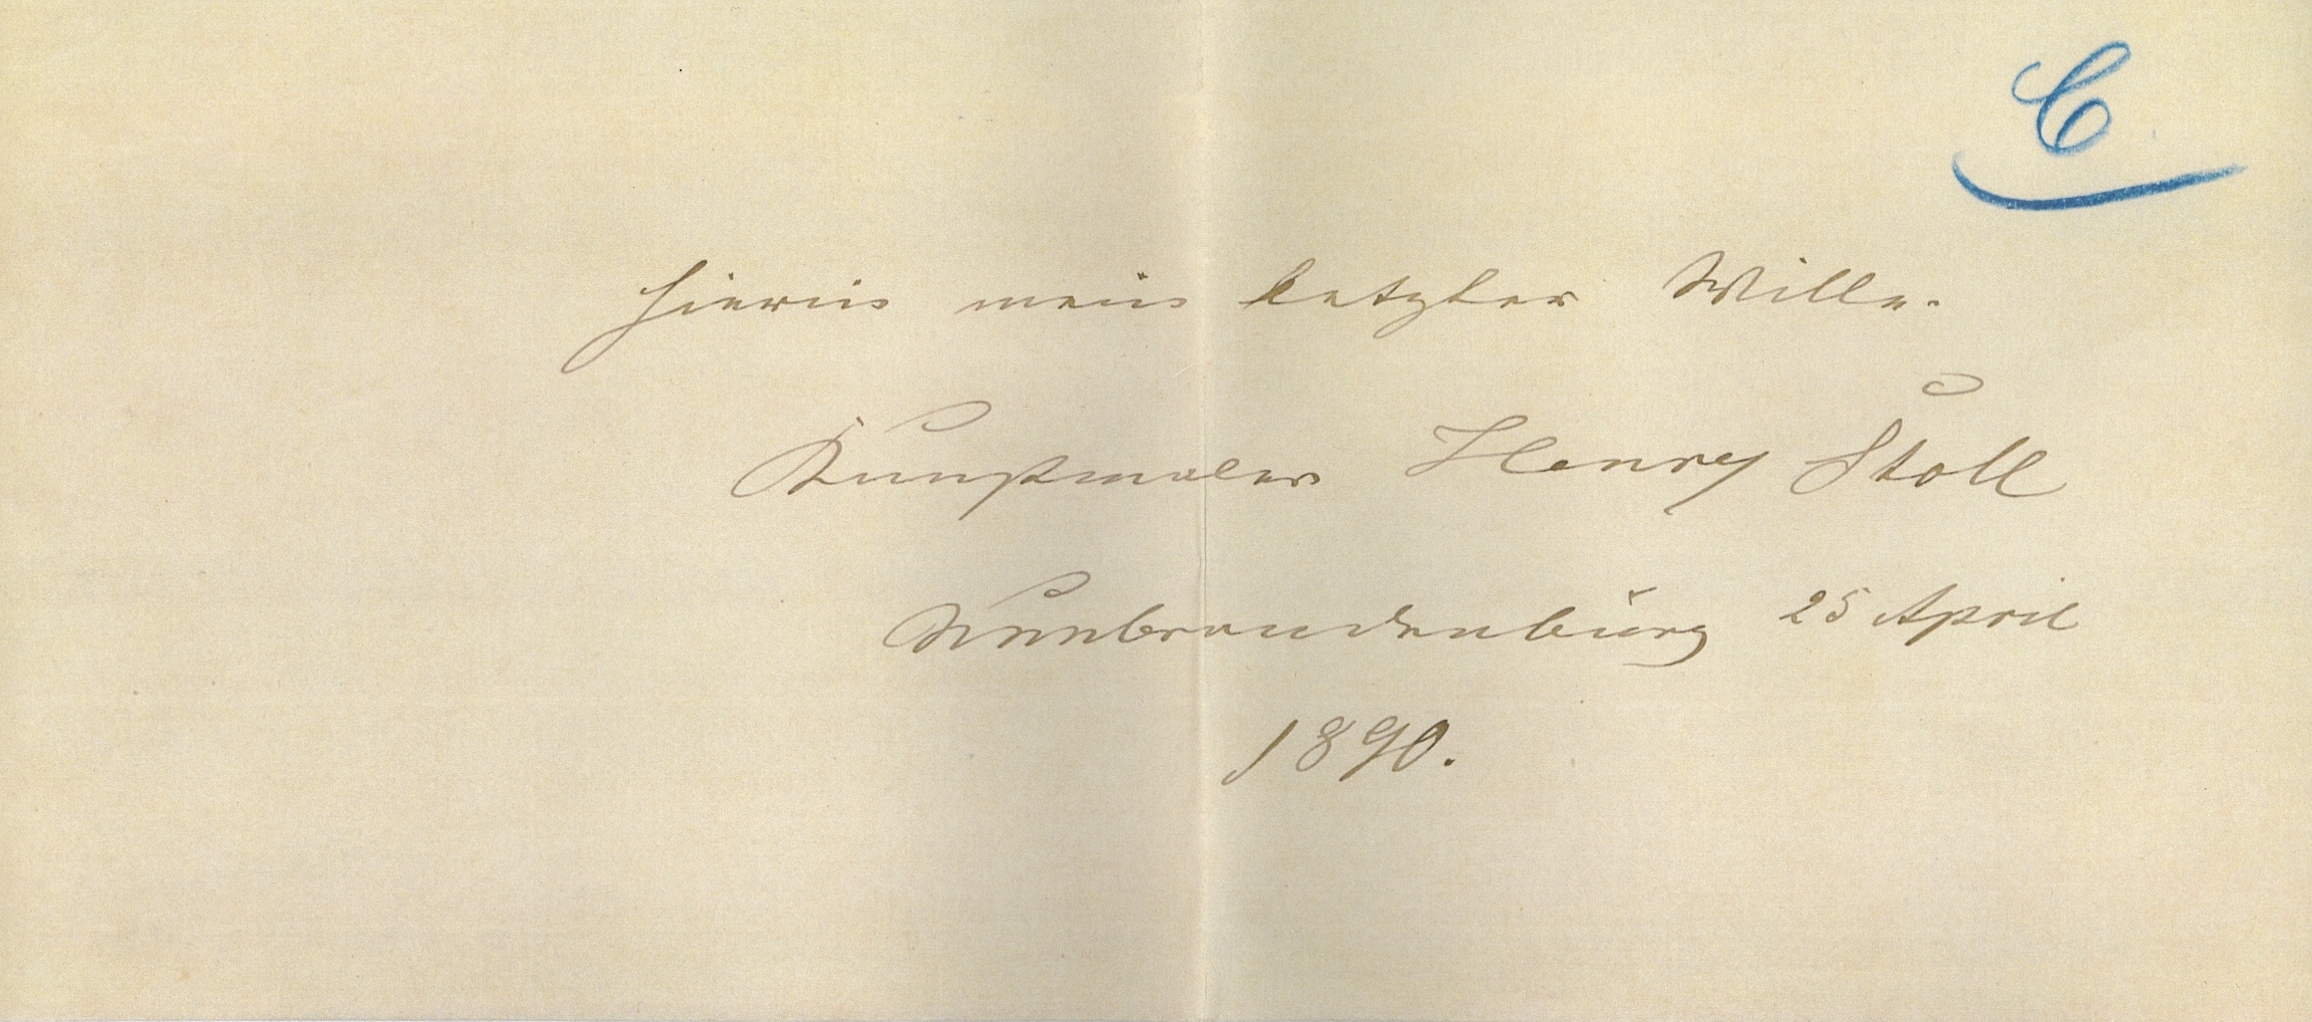 C
Hierin mein letzter Wille.
Kunstmaler Henry Stoll
Neubrandenburg 25 April
1890.